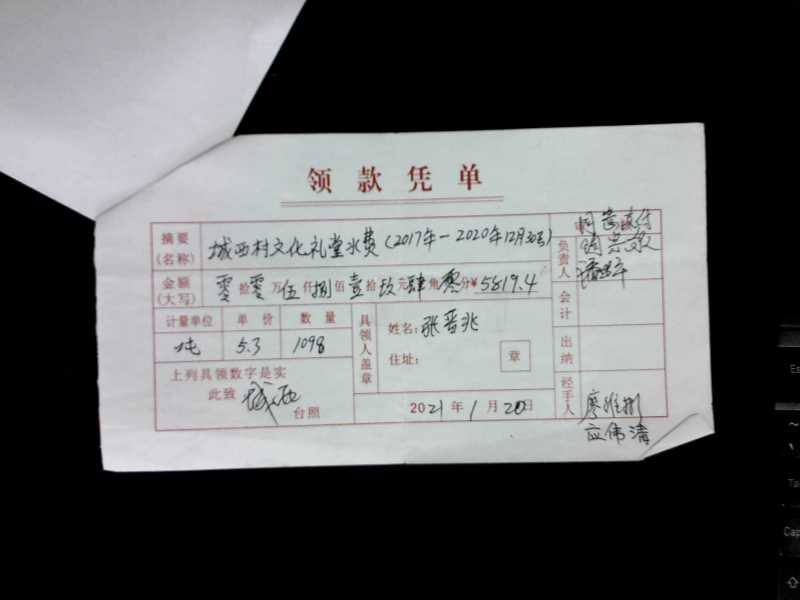 领款凭单
摘要(名称) 城西村文化礼堂水费(2017年-2020年12月30号)
金额(大写) 零拾零万伍仟捌佰壹拾玖元肆角零分¥5819.4
计量单位 单价 数量
吨 5.3 1098
上列具领数字是实
此致 城西 台照
具领人盖章
姓名:张晋兆
住址: 章
2021年1月20日
同意支付
负责人
会计
出纳
经手人
应伟清
Es
Ta
Cap